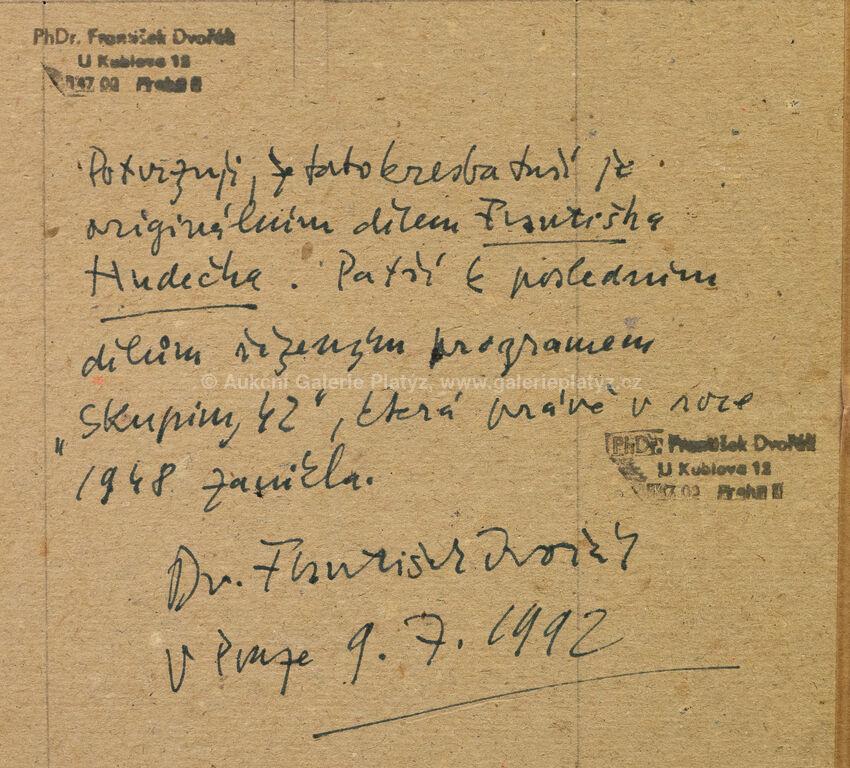 PhDr. František Dvořák
U Kublova 12
147 00 Praha
Potvrzuji, že tato kresba tuší je
originálním dílem Františka
Hudečka. Patří k posledním
dílům řízeným programem
© Aukční Galerie Platýz, www.galerieplatyz.cz
„Skupiny 42", která právě v roce
PhDr. František Dvořák
U Kublova 12
147 00 Praha
1948 zanikla.
Dr. František Dvořák
V Praze 9. 7. 1992